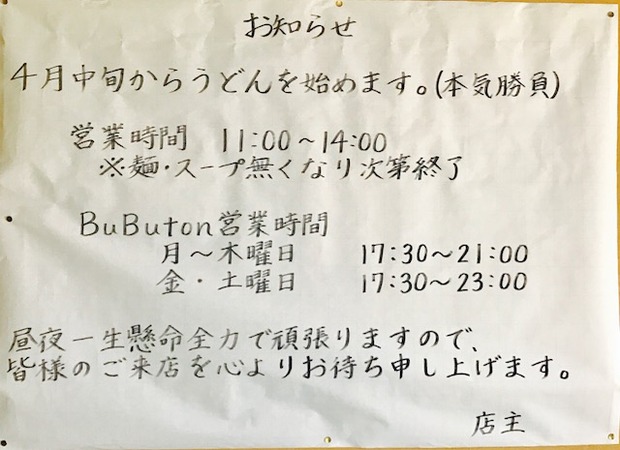 お知らせ
4月中旬からうどんを始めます。(本気勝負)
営業時間 11:00～14:00
※麺・スープ無くなり次第終了
BuButon営業時間
月～木曜日 17:30～21:00
金・土曜日 17:30～23:00
昼夜一生懸命全力で頑張りますので、
皆様のご来店を心よりお待ち申し上げます。
店主